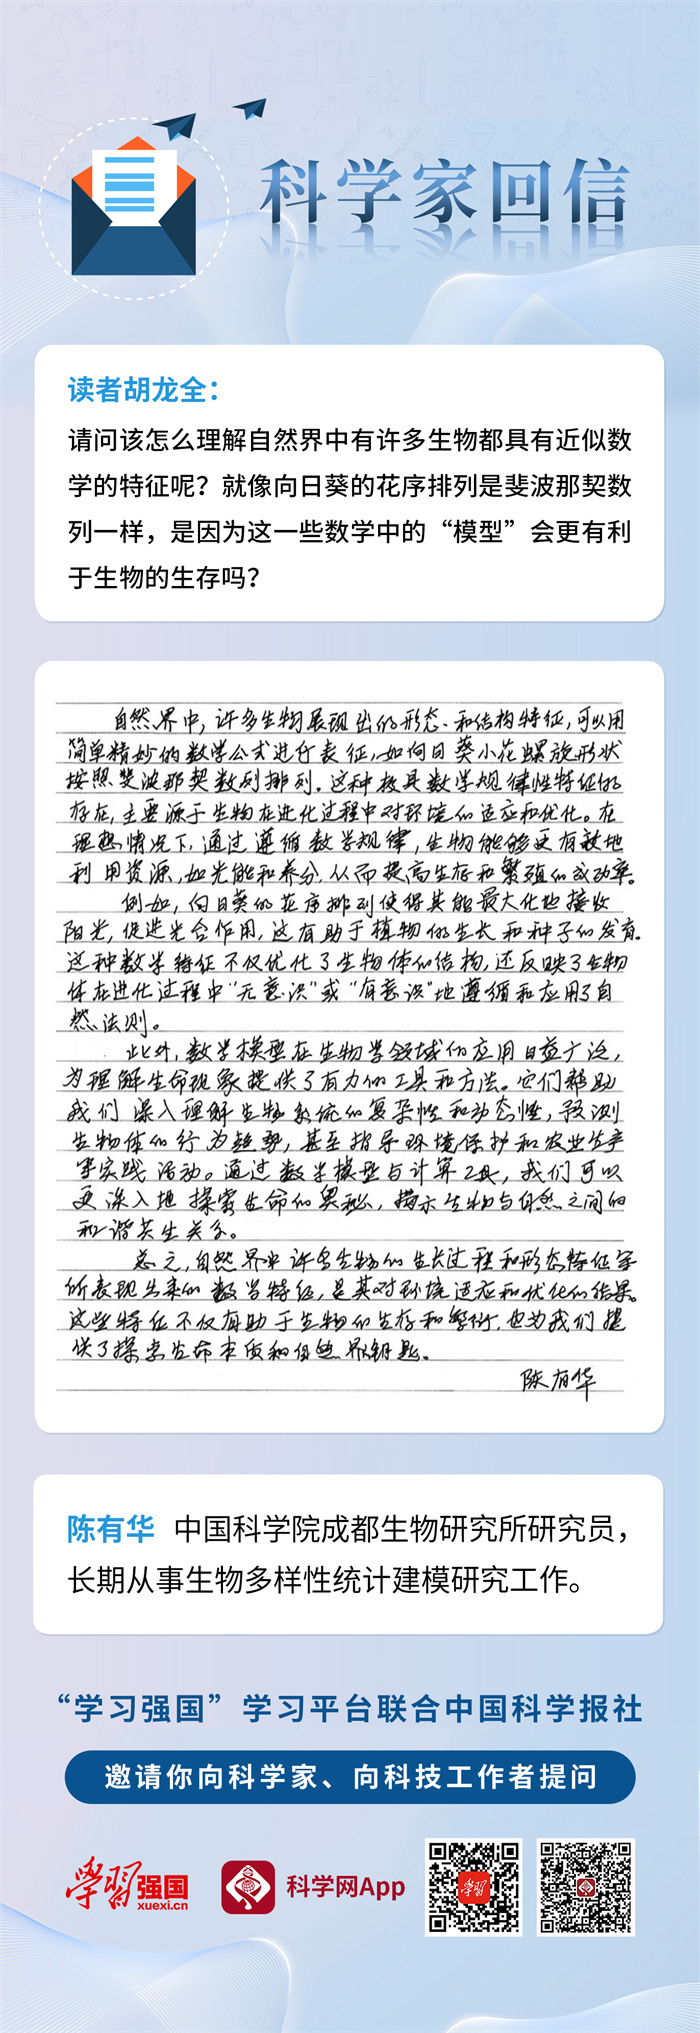 科学家回信
读者胡龙全：
请问该怎么理解自然界中有许多生物都具有近似数
学的特征呢？就像向日葵的花序排列是斐波那契数
列一样，是因为这一些数学中的“模型”会更有利
于生物的生存吗？
自然界中，许多生物展现出的形态和结构特征，可以用
简单精妙的数学公式进行表征，如向日葵小花螺旋形状
按照斐波那契数列排列。这种极具数学规律性特征的
存在，主要源于生物在进化过程中对环境的适应和优化。在
理想情况下，通过遵循数学规律，生物能够更有效地
利用资源，如光能和养分，从而提高生存和繁殖的成功率。
例如，向日葵的花序排列使得其能最大化地接收
阳光，促进光合作用，这有助于植物的生长和种子的发育。
这种数学特征不仅优化了生物体的结构，还反映了生物
体在进化过程中“无意识”或“有意识”地遵循和应用了自
然法则。
此外，数学模型在生物学领域的应用日益广泛，
为理解生命现象提供了有力的工具和方法。它们帮助
我们深入理解生物系统的复杂性和动态性，预测
生物体的行为趋势，甚至指导环境保护和农业生产
等实践活动。通过数学模型与计算工具，我们可以
更深入地探索生命的奥秘，揭示生物与自然之间的
和谐共生关系。
总之，自然界中许多生物的生长过程和形态特征等
所表现出来的数学特征，是其对环境适应和优化的结果。
这些特征不仅有助于生物的生存和繁衍，也为我们提
供了探索生命本质和自然界钥匙。
陈有华
陈有华 中国科学院成都生物研究所研究员，
长期从事生物多样性统计建模研究工作。
“学习强国”学习平台联合中国科学报社
邀请你向科学家、向科技工作者提问
学习强国
xuexi.cn
科学网App
学习